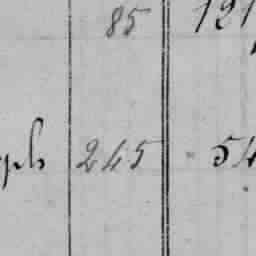 85 121
ph 245 54